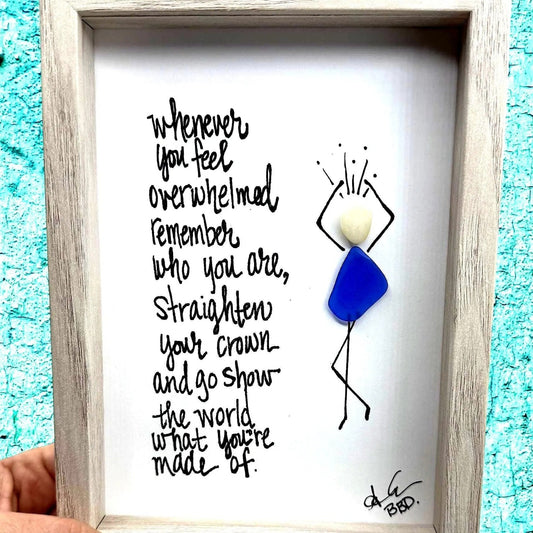 whenever
you feel
overwhelmed
remember
who you are,
straighten
your crown
and go show
the world
what you're
made of.
BBD.